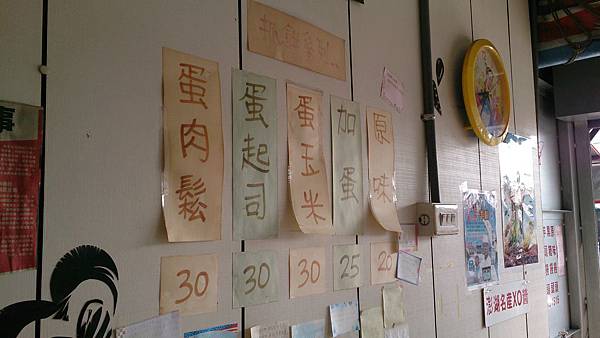 抓餅系列...
原味
20
加蛋
25
蛋玉米
30
蛋起司
30
蛋肉鬆
30
澎湖名產XO醬